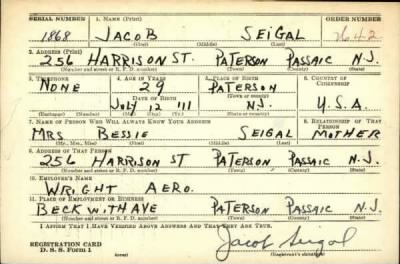 SERIAL NUMBER 1. NAME (Print) ORDER NUMBER
1868 JACOB SEIGAL 2642
(First) (Middle) (Last)
2. ADDRESS (Print)
256 HARRISON ST. PATERSON PASSAIC N.J.
(Number and street or R. F. D. number) (Town) (County) (State)
3. TELEPHONE 4. AGE IN YEARS 5. PLACE OF BIRTH 6. COUNTRY OF CITIZENSHIP
NONE 29 PATERSON
DATE OF BIRTH (Town or county)
JULY 12 '11 N.J. U.S.A.
(Exchange) (Number) (Mo.) (Day) (Yr.) (State or country)
7. NAME OF PERSON WHO WILL ALWAYS KNOW YOUR ADDRESS 8. RELATIONSHIP OF THAT PERSON
MRS BESSIE SEIGAL MOTHER
(Mr., Mrs., Miss) (First) (Middle) (Last)
9. ADDRESS OF THAT PERSON
256 HARRISON ST PATERSON PASSAIC N.J.
(Number and street or R. F. D. number) (Town) (County) (State)
10. EMPLOYER'S NAME
WRIGHT AERO.
11. PLACE OF EMPLOYMENT OR BUSINESS
BECKWITH AVE PATERSON PASSAIC N.J.
(Number and street or R. F. D. number) (Town) (County) (State)
I AFFIRM THAT I HAVE VERIFIED ABOVE ANSWERS AND THAT THEY ARE TRUE.
REGISTRATION CARD
D. S. S. Form 1 (over) Jacob Seigal
(Registrant's signature)